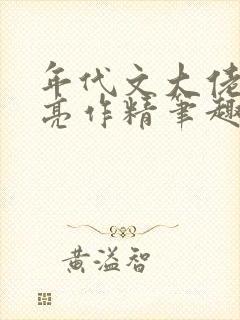 年代文大佬
亮作精笔趣
黄溢智